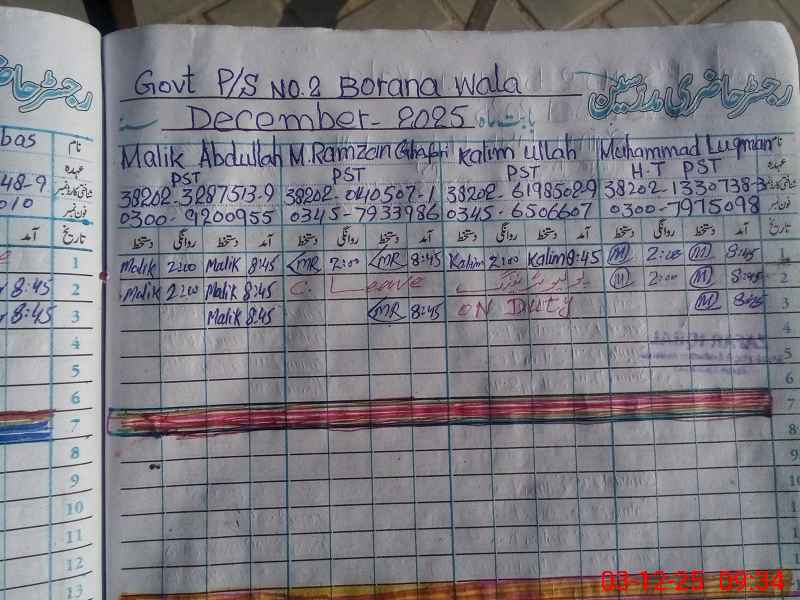 Govt P/S NO.2 Borana Wala
رجسٹر حاضری مدرسین
December - 2025 بابت ماہ سنہ
Malik Abdullah M. Ramzan Kalim ullah Muhammad Luqman نام
PST PST PST H.T PST عہدہ
38202-3287513-9 38202-0410507-1 38202-6198502-9 38202-1330738-3
0300-9200955 0345-7933986 0345-6506607 0300-7975098 فون نمبر
دستخط روانگی دستخط آمد دستخط روانگی دستخط آمد دستخط روانگی دستخط آمد دستخط روانگی دستخط آمد تاریخ
Malik 2:00 Malik 8:45 MR 2:00 MR 8:45 Kalim 2:00 Kalim 8:45 M 2:00 M 8:45 1
Malik 2:00 Malik 8:45 C. Leave M 2:00 M 8:45 2
Malik 8:45 MR 8:45 ON Duty M 8:45 3
4
5
6
7
8
9
10
11
12
13
bas
48-9
010
آمد تاریخ
1
8:45 2
8:45 3
4
5
6
7
8
9
10
11
12
13
03-12-25 09:34